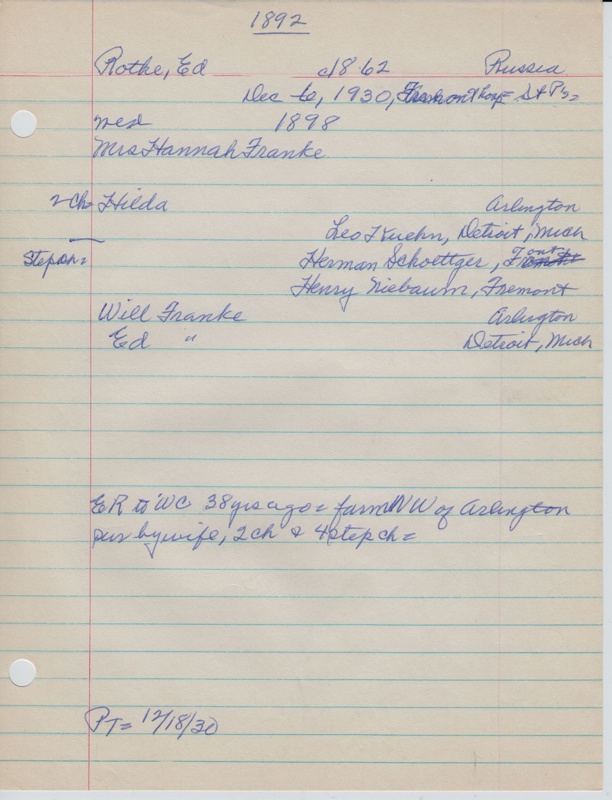 1892
Rothe, Ed c1862 Russia
Dec 6, 1930, Hosp= St P's=
wed 1898
Mrs Hannah Franke
2 ch= Hilda Arlington
Leo Kuehn, Detroit, Mich
Step ch= Herman Schoettger,
Henry Niebaum, Fremont
Will Franke Arlington
Ed " Detroit, Mich
ER to WC 38 yrs ago = farm NW of Arlington
sur by wife, 2 ch & 4 step ch=
PT= 12/18/30